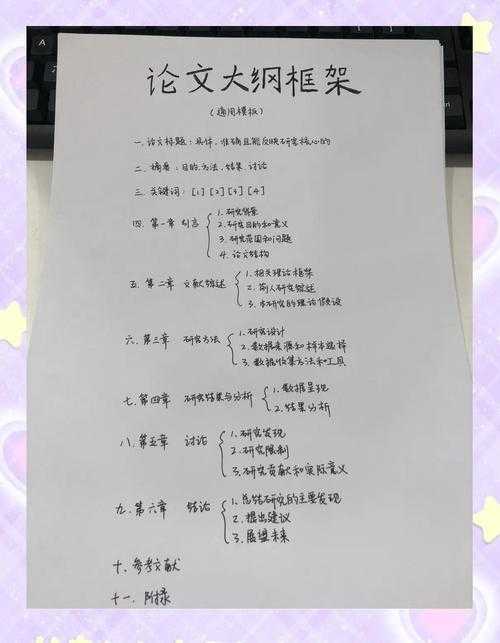 论文大纲框架
(通用模板)
一. 论文标题：具体、准确且能反映研究核心的
二. 摘要：目的.方法.结果.讨论
三. 关键词：[1] [2] [3] [4]
四. 第一章 引言
1. 研究背景
2. 研究目的和意义
3. 研究范围和问题
4. 论文结构
五. 第二章 文献综述
1. 相关理论框架
2. 前人研究综述
3. 本研究的理论假设
六. 第三章 研究方法
1. 研究设计
2. 数据来源和样本选择
3. 数据收集方法和工具
七. 第四章 研究结果与分析
1. 数据呈现
2. 结果分析
八. 第五章 讨论
1. 研究发现
2. 研究限制
3. 研究贡献和实际意义
九. 第六章 结论
1. 总结研究的主要发现
2. 提出建议
3. 展望未来
十、参考文献
十一、附录